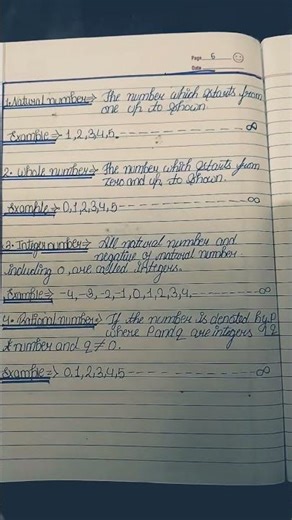 Page 6
Date
1. Natural number => The number which starts from
one up to shown.
Example => 1,2,3,4,5 ------------ ∞
2- Whole number => The number which starts from
zero and up to shown.
Example => 0,1,2,3,4,5 ------------ ∞
3- Integer number => All natural number and
negative of natural number
including 0, are called integers.
Example => -4, -3, -2, -1, 0, 1, 2, 3, 4. ------------ ∞
4- Rational number => If the number is denoted by P
where P and q are integers q
number and q ≠ 0.
Example => 0,1,2,3,4,5 ------------ ∞